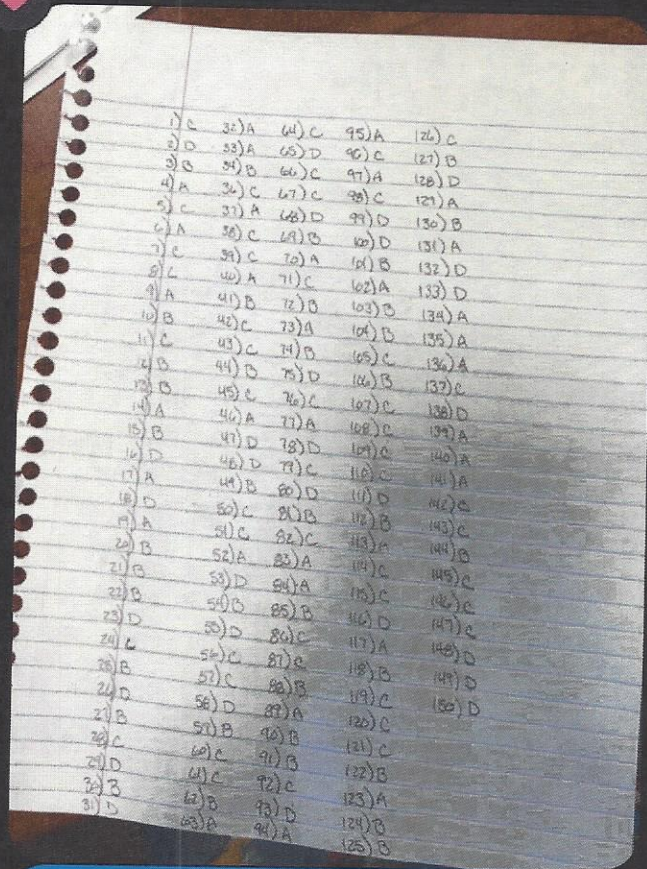 1) C
2) D
3) B
4) A
5) C
6) A
7) C
8) C
9) A
10) B
11) C
12) B
13) B
14) A
15) B
16) D
17) A
18) D
19) A
20) B
21) B
22) B
23) D
24) C
25) B
26) D
27) B
28) C
29) D
30) B
31) D
32) A
33) A
34) B
36) C
37) A
38) C
39) C
40) A
41) B
42) C
43) C
44) B
45) C
46) A
47) D
48) D
49) B
50) C
51) C
52) A
53) D
54) B
55) D
56) C
57) C
58) D
59) B
60) C
61) C
62) B
63) A
64) C
65) D
66) C
67) C
68) D
69) B
70) A
71) C
72) B
73) A
74) B
75) D
76) C
77) A
78) D
79) C
80) D
81) B
82) C
83) A
84) A
85) B
86) C
87) C
88) B
89) A
90) B
91) B
92) C
93) D
94) A
95) A
96) C
97) A
98) C
99) D
100) D
101) B
102) A
103) B
104) B
105) C
106) B
107) C
108) C
109) C
110) C
111) D
112) B
113) A
114) C
115) C
116) D
117) A
118) B
119) C
120) C
121) C
122) B
123) A
124) B
125) B
126) C
127) B
128) D
129) A
130) B
131) A
132) D
133) D
134) A
135) A
136) A
137) C
138) D
139) A
140) A
141) A
142) C
143) C
144) B
145) C
146) C
147) C
148) D
149) D
150) D